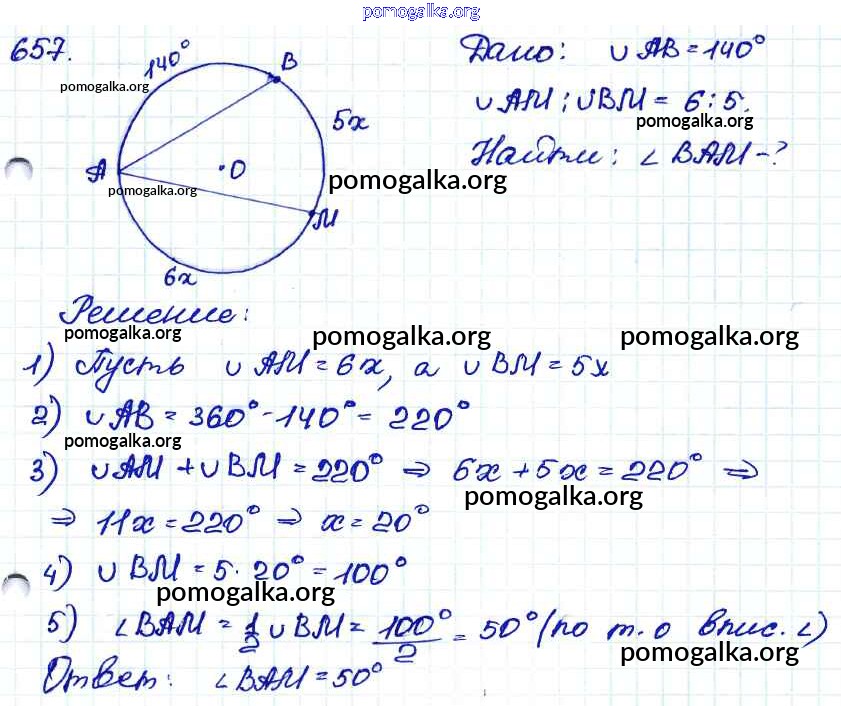 pomogalka.org
657.
140°
B
Дано: ∪ AB = 140°
pomogalka.org
5x
∪ AM : ∪ BM = 6 : 5.
pomogalka.org
A
O
Найти: ∠ BAM - ?
pomogalka.org
pomogalka.org
M
6x
Решение:
pomogalka.org
pomogalka.org
pomogalka.org
1) Пусть ∪ AM = 6x, а ∪ BM = 5x
2) ∪ AB = 360° - 140° = 220°
pomogalka.org
3) ∪ AM + ∪ BM = 220° ⇒ 6x + 5x = 220° ⇒
pomogalka.org
⇒ 11x = 220° ⇒ x = 20°
4) ∪ BM = 5 · 20° = 100°
pomogalka.org
5) ∠ BAM = 1/2 ∪ BM = 100°/2 = 50° (по т. о впис. ∠)
pomogalka.org
Ответ: ∠ BAM = 50°